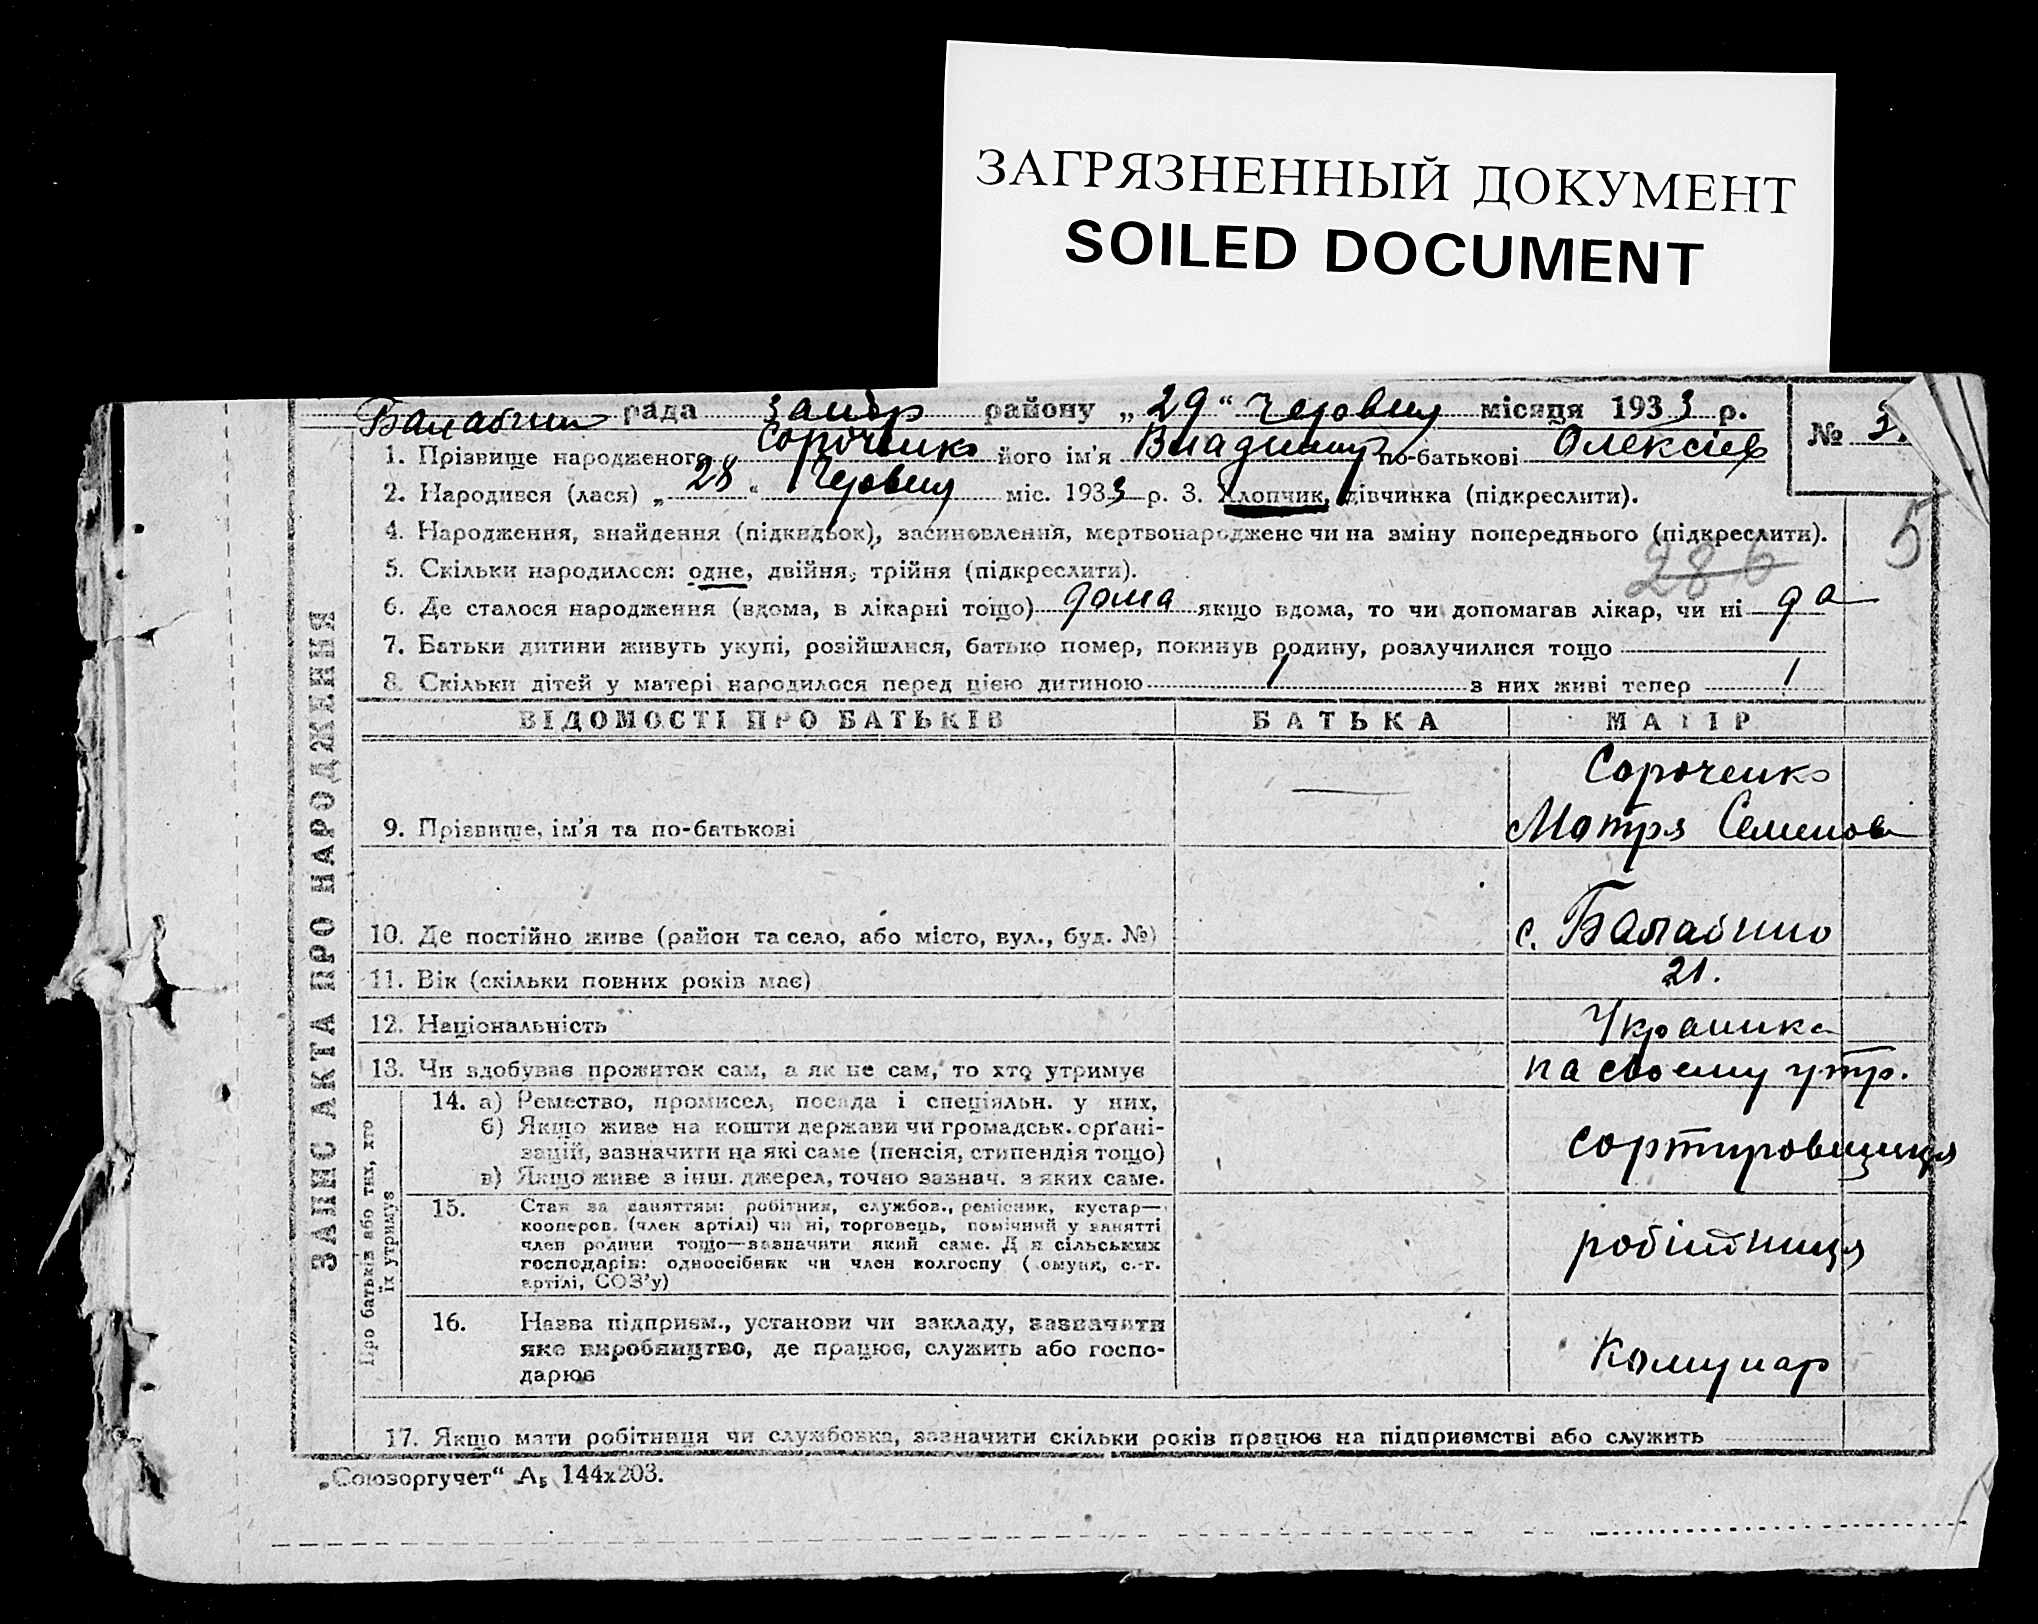 ЗАГРЯЗНЕННЫЙ ДОКУМЕНТ
SOILED DOCUMENT
Балабин рада Запор району „29“ Червня місяця 1933 р.
№
1. Прізвище народженого Сороченко його ім'я Владимир по-батькові Олексієв
2. Народився (лася) „28“ Червня міс. 1933 р. 3. Хлопчик, дівчинка (підкреслити).
4. Народження, знайдення (підкидьок), засиновлення, мертвонароджене чи на зміну попереднього (підкреслити).
5
286
5. Скільки народилося: одне, двійня, трійня (підкреслити).
6. Де сталося народження (вдома, в лікарні тощо) дома якщо вдома, то чи допомагав лікар, чи ні да
7. Батьки дитини живуть укупі, розійшлися, батько помер, покинув родину, розлучилися тощо
8. Скільки дітей у матері народилося перед цією дитиною 1 з них живі тепер 1
ЗАПИС АКТА ПРО НАРОДЖЕННЯ
ВІДОМОСТІ ПРО БАТЬКІВ БАТЬКА МАТІР
Сороченко
9. Прізвище, ім'я та по-батькові — Мотря Семенов
10. Де постійно живе (район та село, або місто, вул., буд. №) с. Балабино
11. Вік (скільки повних років має) 21.
12. Національність Украинка
13. Чи здобуває прожиток сам, а як не сам, то хто утримує на своему утр.
Про батьків або тих, хто їх утримує
14. а) Ремество, промисел, посада і спеціяльн. у них,
б) Якщо живе на кошти держави чи громадськ. орґані-
зацій, зазначити на які саме (пенсія, стипендія тощо)
в) Якщо живе з інш. джерел, точно зазнач. з яких саме.
сортировщиця
15. Стан за заняттям: робітник, службов., ремісник, кустар—
кооперов. (член артілі) чи ні, торговець, помічний у занятті
член родини тощо—зазначити який саме. Д я сільських
господарів: одноосібник чи член колгоспу ( омуни, с.-г.
артілі, СОЗ'у)
робітниця
16. Назва підприєм., установи чи закладу, зазначити
яке виробництво, де працює, служить або госпо-
дарює
Комунар
17. Якщо мати робітниця чи службовка, зазначити скільки років працює на підприємстві або служить
„Союзоргучет“ А5 144х203.